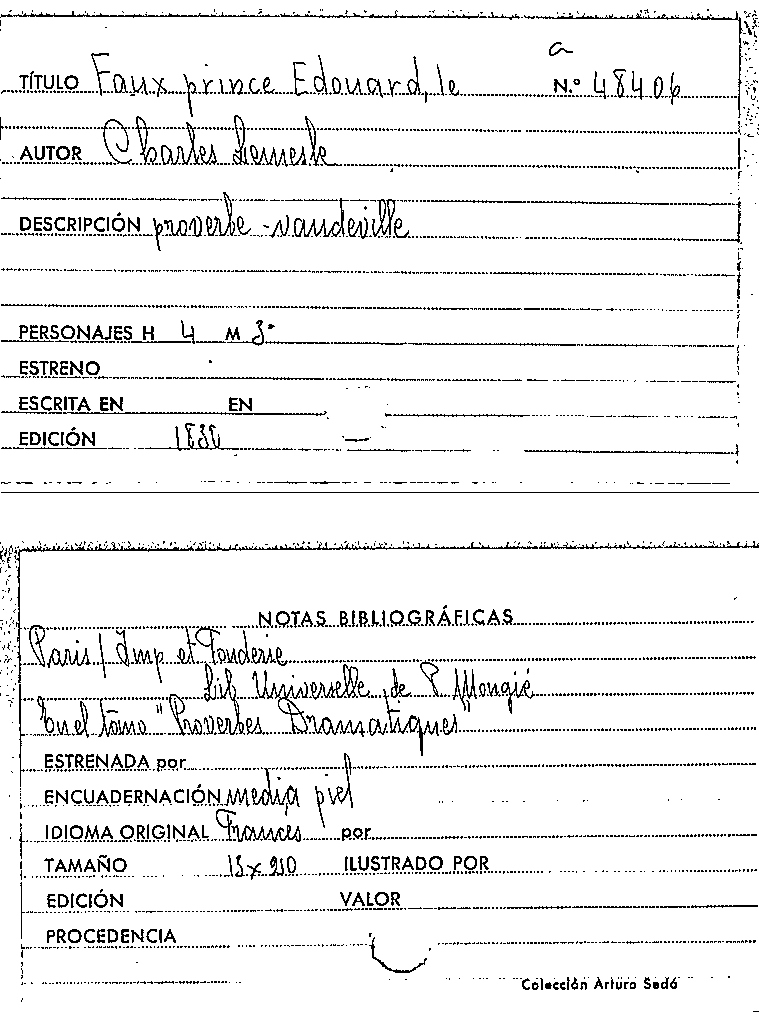 a
TÍTULO Faux prince Edouard, le N.º 48406
AUTOR Charles Lemesle
DESCRIPCIÓN proverbe-vaudeville
PERSONAJES H 4 M 3
ESTRENO
ESCRITA EN EN
EDICIÓN
NOTAS BIBLIOGRÁFICAS
Paris / Imp et Fonderie
Lib Universelle, de P Mongié
En el tomo "Proverbes Dramatiques"
ESTRENADA por
ENCUADERNACIÓN media piel
IDIOMA ORIGINAL Francés por
TAMAÑO ILUSTRADO POR
EDICIÓN VALOR
PROCEDENCIA
Colección Arturo Sedó